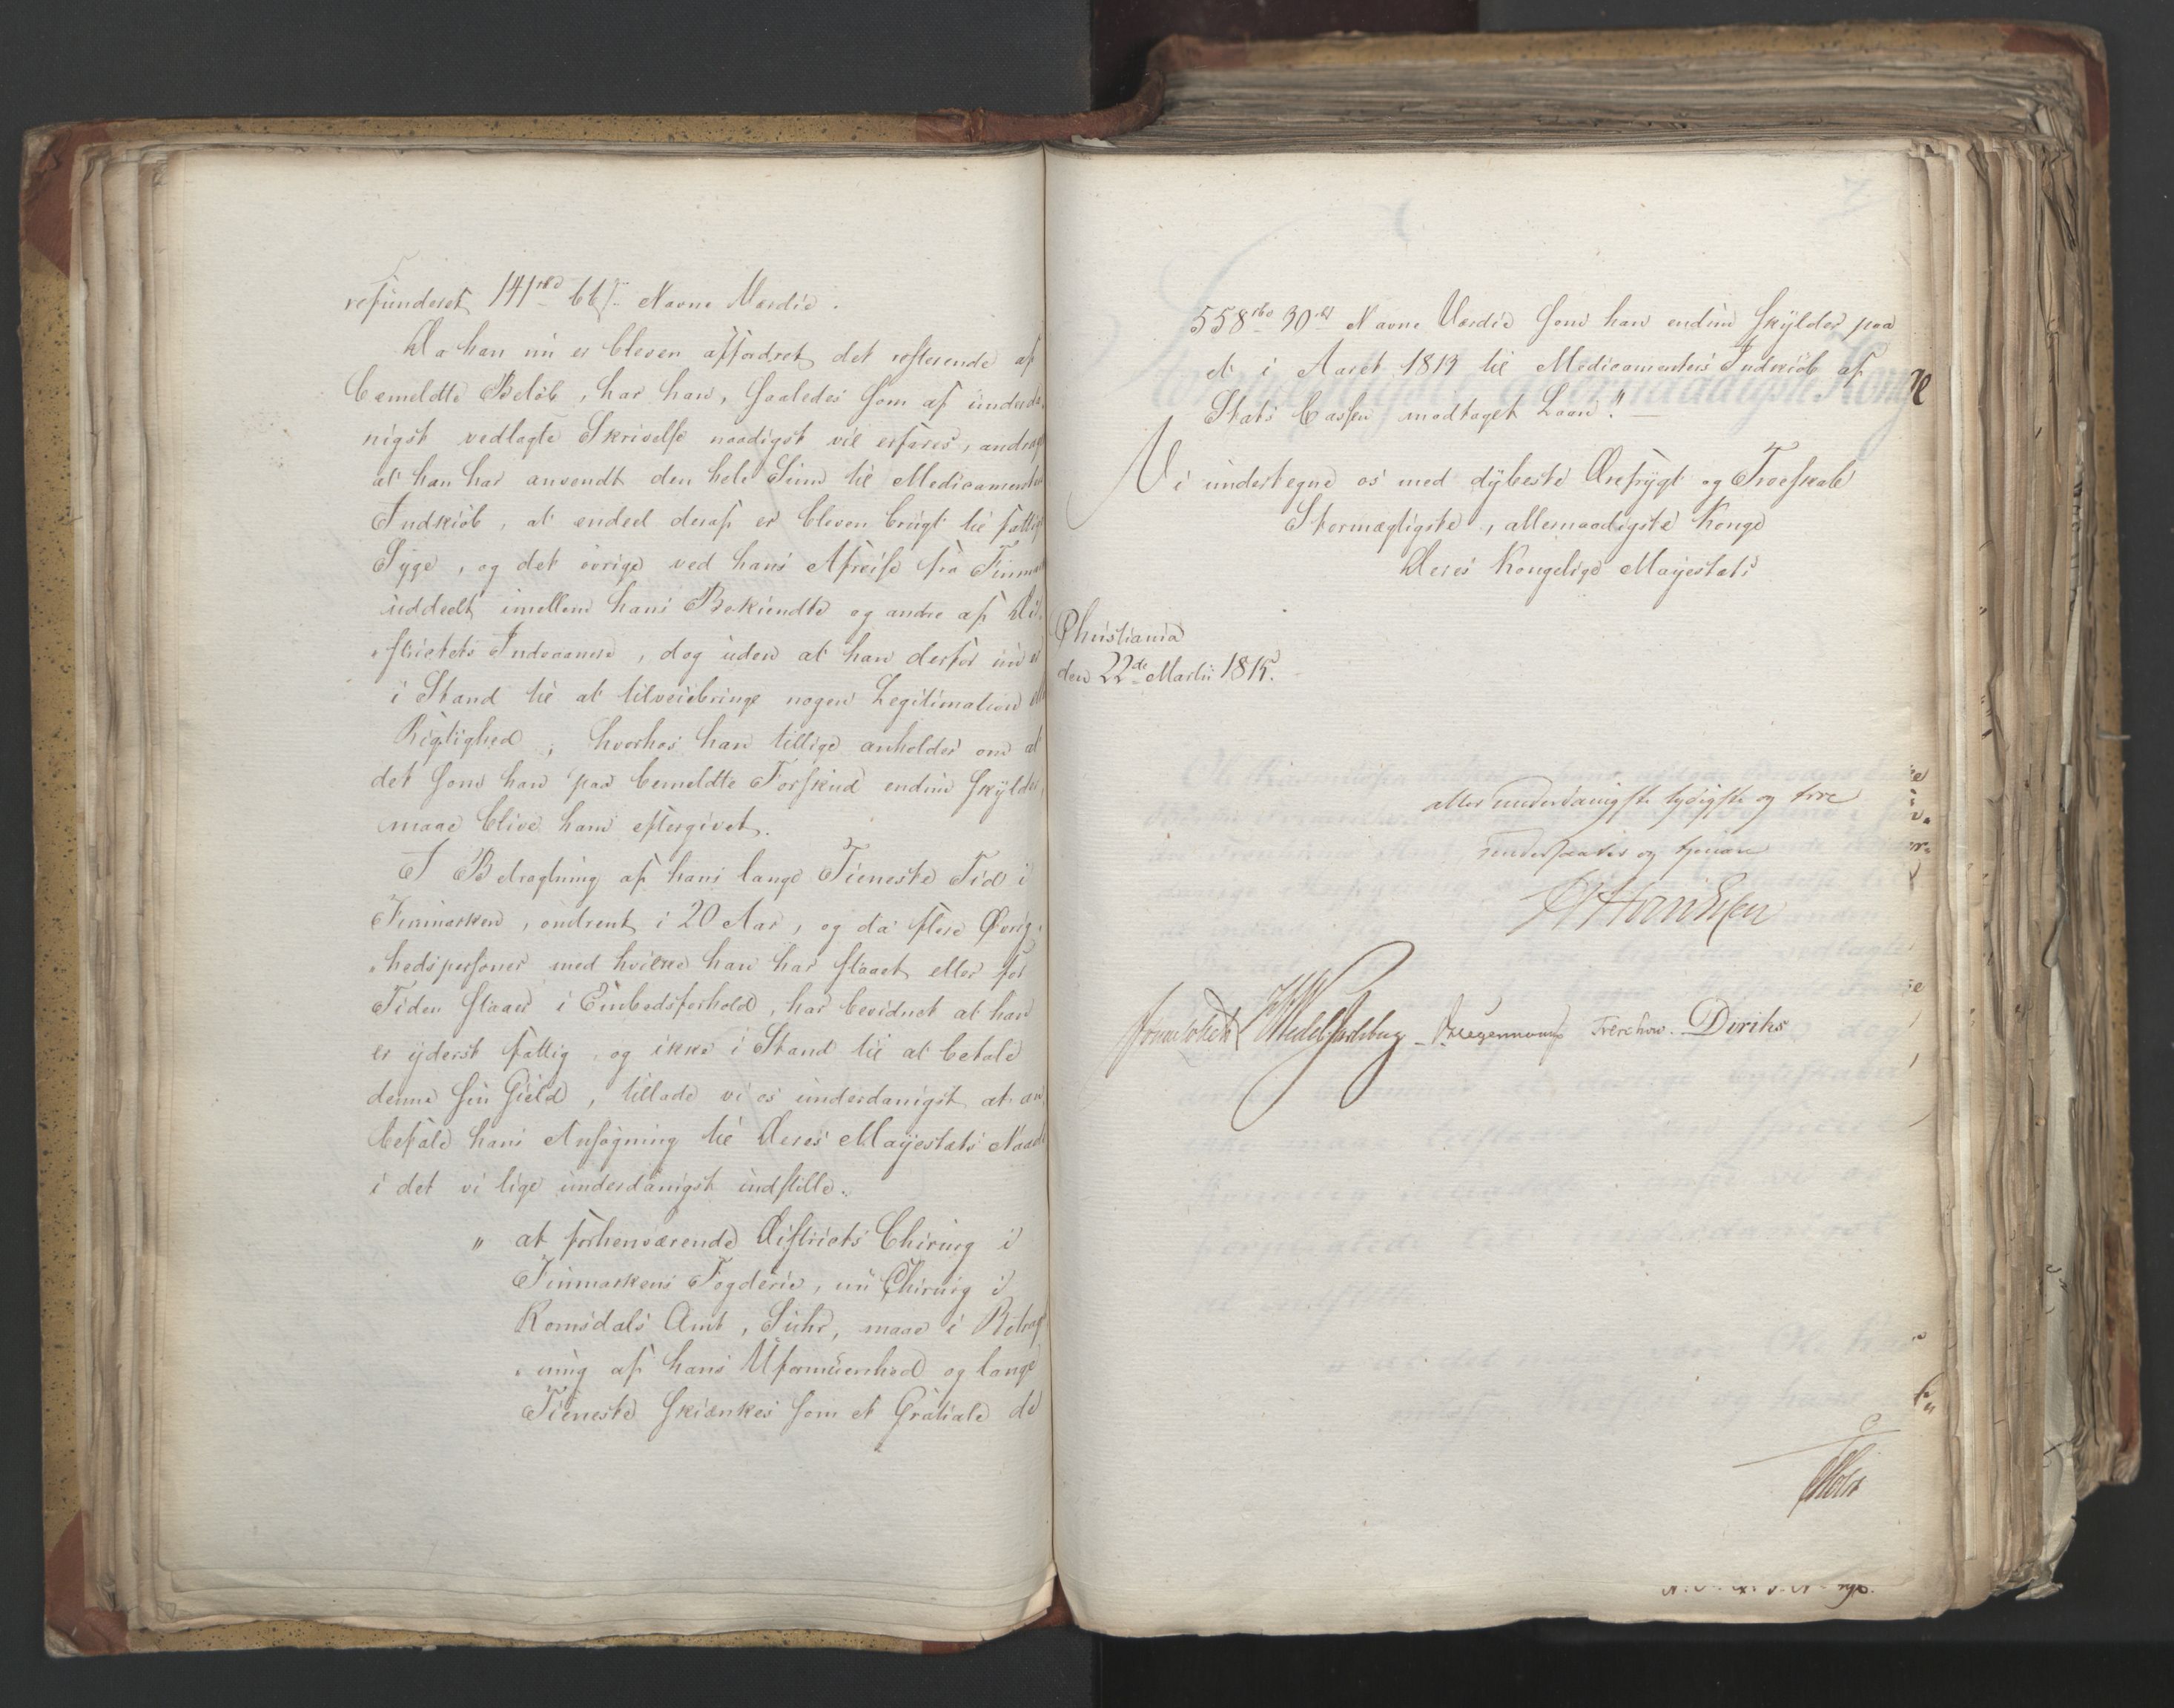 refunderet 141 rbd 66 s. Navne Værdie.
Da han nu er bleven affordret det resterende af
bemeldte Beløb, har han, saaledes som af underda-
nigst vedlagte Skrivelse naadigst vil erfares, andraget
at han har anvendt den hele Sum til Medicamenters
Indkiøb, at endeel deraf er bleven brugt til fattige
Syge, og det øvrige ved hans Afreise fra Finmarken
uddeelt imellem hans Bekiendte og andre af Di-
„strictets Indvaanere, dog uden at han derfor nu er
i Stand til at tilveiebringe nogen Legitimation eller
Rigtighed; hvorhos han tillige anholder om at
det som han paa bemeldte Forskud endnu skylder,
maae blive ham eftergivet.
I Betragtning af hans lange Tieneste Tid i
Finmarken, omtrent i 20 Aar, og da flere Øvrig-
„hedspersoner med hvilke han har staaet eller for
Tiden staaer i Embedsforhold, har bevidnet at han
er yderst fattig, og ikke i Stand til at betale
denne sin Gield, tillade vi os underdanigst at an-
befale hans Ansøgning til Deres Mayestæts Naade
i det vi lige underdanigst indstille.
„ at forhenværende Districts Chirurg i
Finmarkens Fogderie, nu Chirurg i
Romsdals Amt, Suhr, maae i Betragt-
„ning af hans Uformuenhed og lange
Tieneste skiænkes som et Gratiale de
558 rbd 30 s Navne Værdie som han endnu skylder paa
et i Aaret 1813 til Medicamenters Indkiøb af
Stats Cassen modtaget Laan." —
Vi undertegne os med dybeste Ærefrygt og Troeskab
Stormægtigste, allernaadigste Konge
Deres Kongelige Mayestæts
Christiania
den 22de Martii 1815.
allerunderdanigste lydigste og troe
undersaatter og tjenere
Sommerhielm HWedel Jarlsberg D. Hegermann Treschow. Diriks
Holst